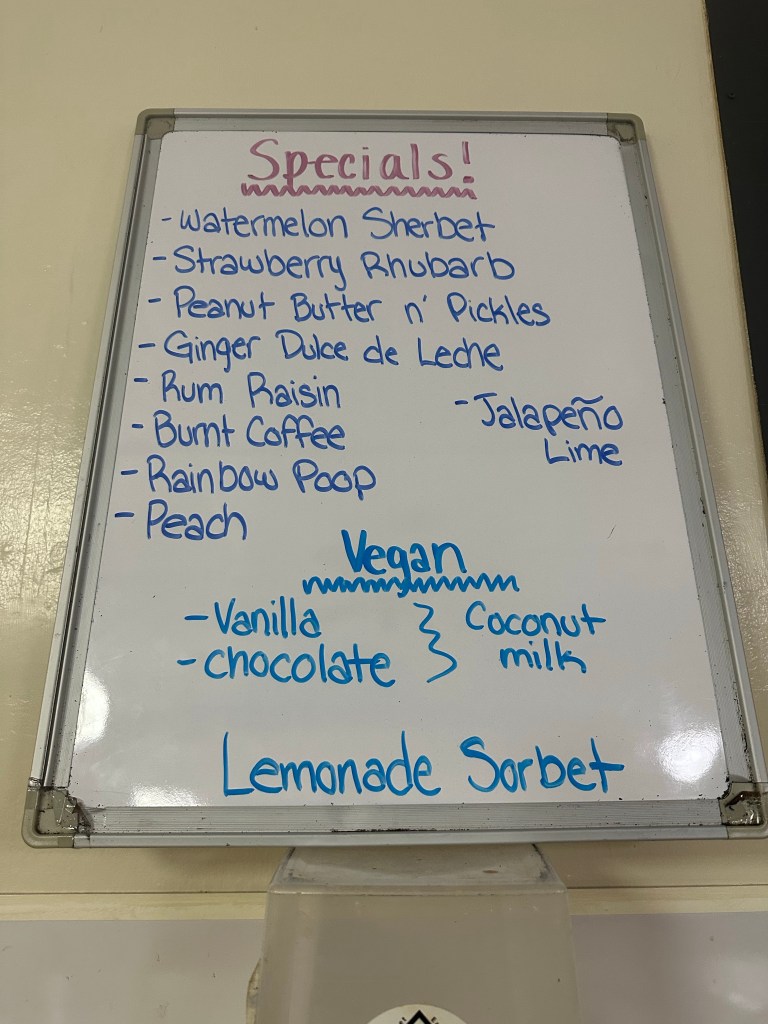 Specials!
- Watermelon Sherbet
- Strawberry Rhubarb
- Peanut Butter n' Pickles
- Ginger Dulce de Leche
- Rum Raisin
- Burnt Coffee
- Rainbow Poop
- Peach
- Jalapeño
Lime
Vegan
- Vanilla
- chocolate
} Coconut
milk
Lemonade Sorbet